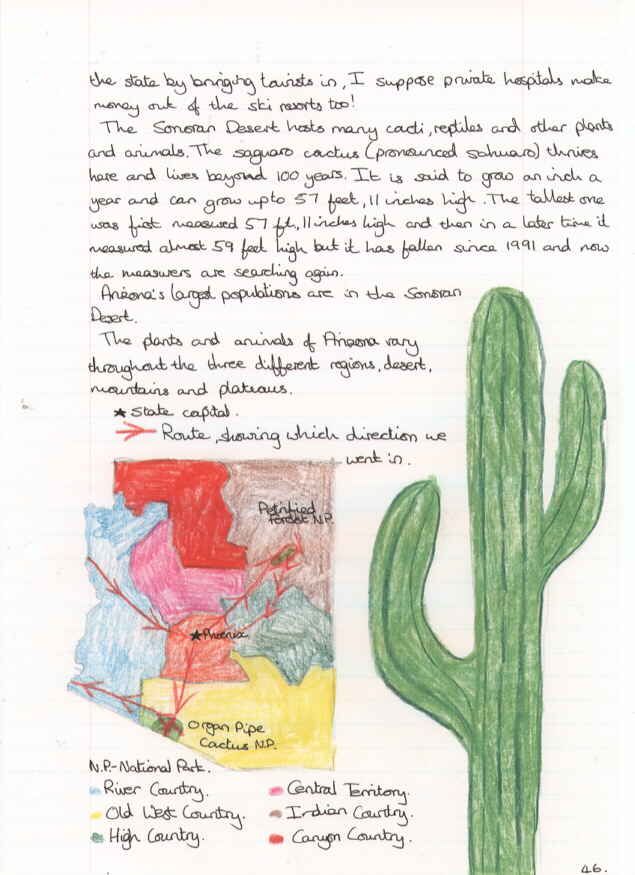 the state by bringing tourists in, I suppose private hospitals make
money out of the ski resorts too!
The Sonoran Desert hosts many cacti, reptiles and other plants
and animals. The saguaro cactus (pronounced sahuaro) thrives
here and lives beyond 100 years. It is said to grow an inch a
year and can grow up to 57 feet, 11 inches high. The tallest one
was first measured 57 ft, 11 inches high and then in a later time it
measured almost 59 feet high but it has fallen since 1991 and now
the measurers are searching again.
Arizona's largest populations are in the Sonoran
Desert.
The plants and animals of Arizona vary
throughout the three different regions, desert,
mountains and plateaus.
★ State capital.
Route, showing which direction we
went in.
Petrified
Forest N.P.
★Phoenix
Organ Pipe
Cactus N.P.
N.P.-National Park.
River Country.
Central Territory.
Old West Country.
Indian Country.
High Country.
Canyon Country.
46.